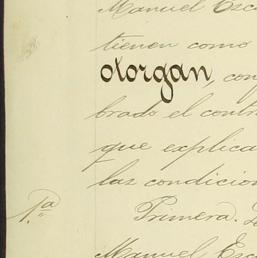 Manuel Esc
tienen como
otorgan, con
brado el contr
que explica
las condicion
1.ª Primera.
Manuel Esc